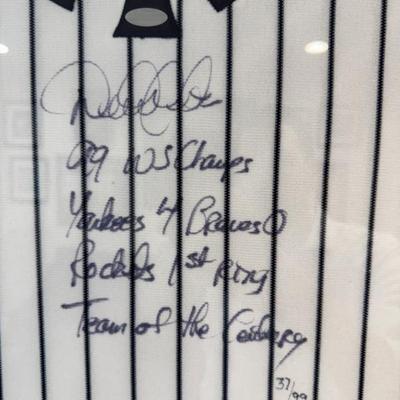 99 WS Champs
Yankees 4 Braves 0
Rockets 1st Ring
Team of the Century
37/99